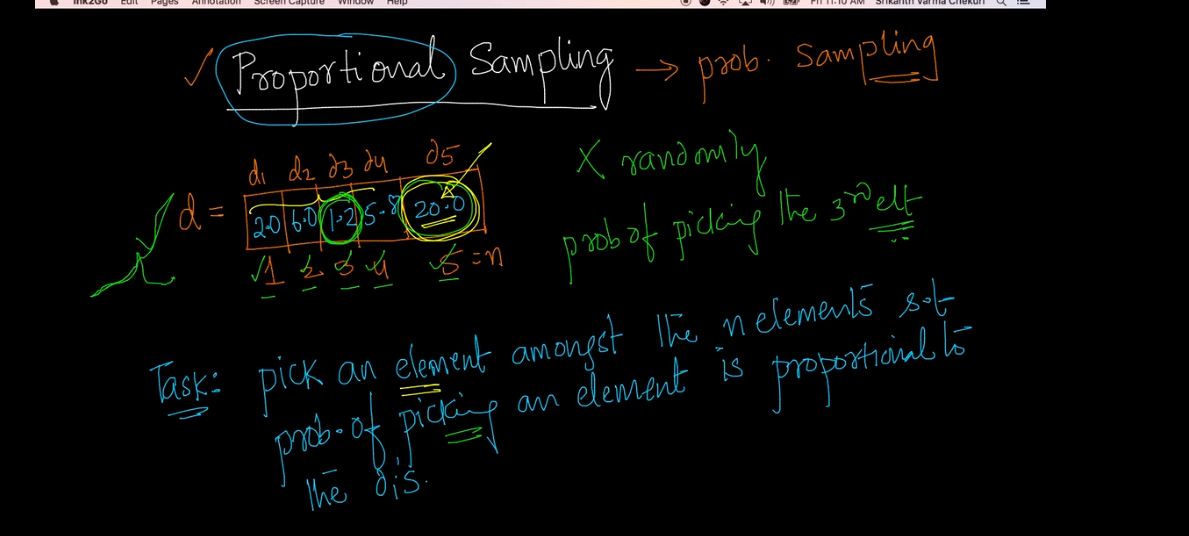 Ink2Go Edit Pages Annotation Screen Capture Window Help Fri 11:10 AM Srikanth Varma Chekuri
Proportional Sampling → prob. Sampling
d1 d2 d3 d4 d5
d = 2.0 6.0 1.2 5.8 20.0
1 2 3 4 5 = n
X randomly
prob of picking the 3rd elt
Task: pick an element amongst the n elements s.t
prob. of picking an element is proportional to
the dis.